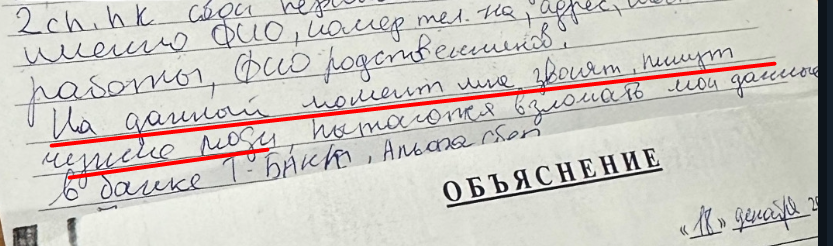 2ch.hk свои
именно ФИО, номер тел. на, адрес,
работы, ФИО родственников.
На данный момент мне звонят, пишут
чужие люди, пытаются взломать мои данные
в банке Т-Банк, Альфа
ОБЪЯСНЕНИЕ
«18» декабря 20